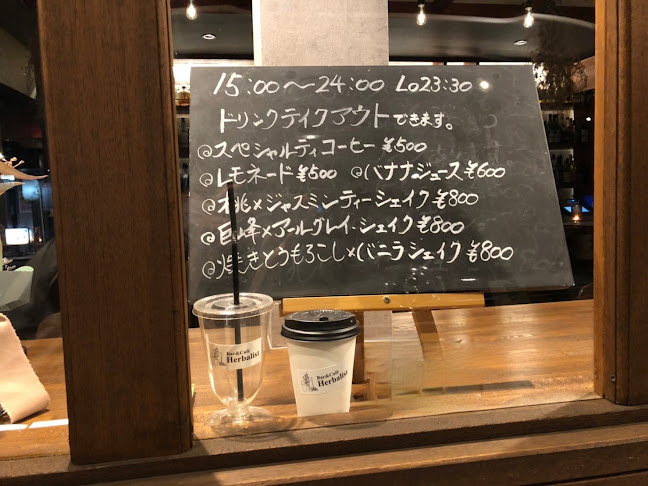 15:00〜24:00 Lo23:30
ドリンクテイクアウトできます。
@スペシャルティコーヒー ¥500
@レモネード ¥500 @バナナジュース ¥600
@桃×ジャスミンティーシェイク ¥800
@巨峰×アールグレイ・シェイク ¥800
@焼きとうもろこし×バニラシェイク ¥800
Bar&Café
Herbalist
Bar&Café
Herbalist